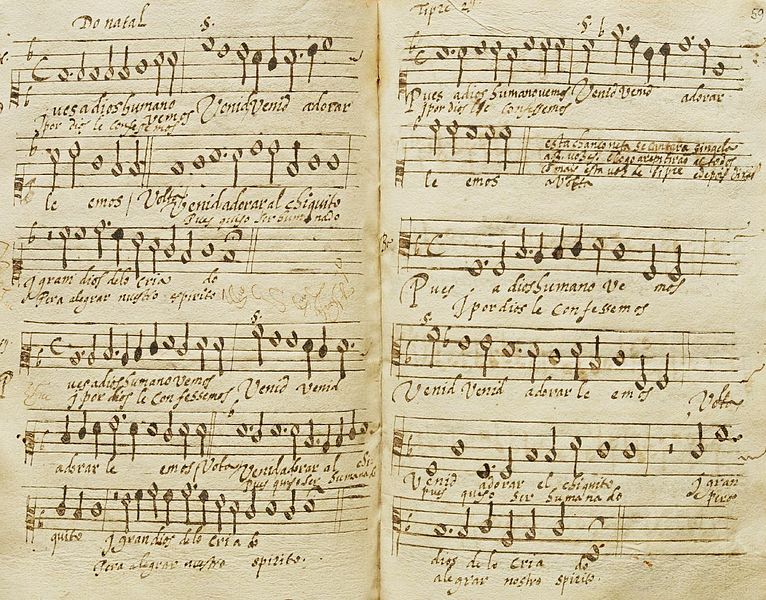 Do natal
§.
ues a dios humano vemos Venid venid adorar
j por dios le confessemos
le emos / Volta Venid adorar al chiquito
Pues quiso ser humanado
j gram dios delo cria do
Pera alegrar nuestro spirito
§.
ues a dios humano vemos Venid venid
j por dios le confessemos
adorar le emos Volta Venid adorar al chi
Pues quiso ser humanado
quito j gran dios delo cria do
Pera alegrar nuestro spirito.
Tipre 2º
59
§.
Pues a dios humano vemos Venid venid adorar
j por dios le confessemos
le emos
esta chançoneta se cantara
a volta
Pues a dios humano ve mos
j por dios le confessemos
§.
Venid Venid adorar le emos Volta
Venid adorar el chiquito j gran
pues quiso ser humanado pera
dios de lo cria do
alegrar nostro spirito.